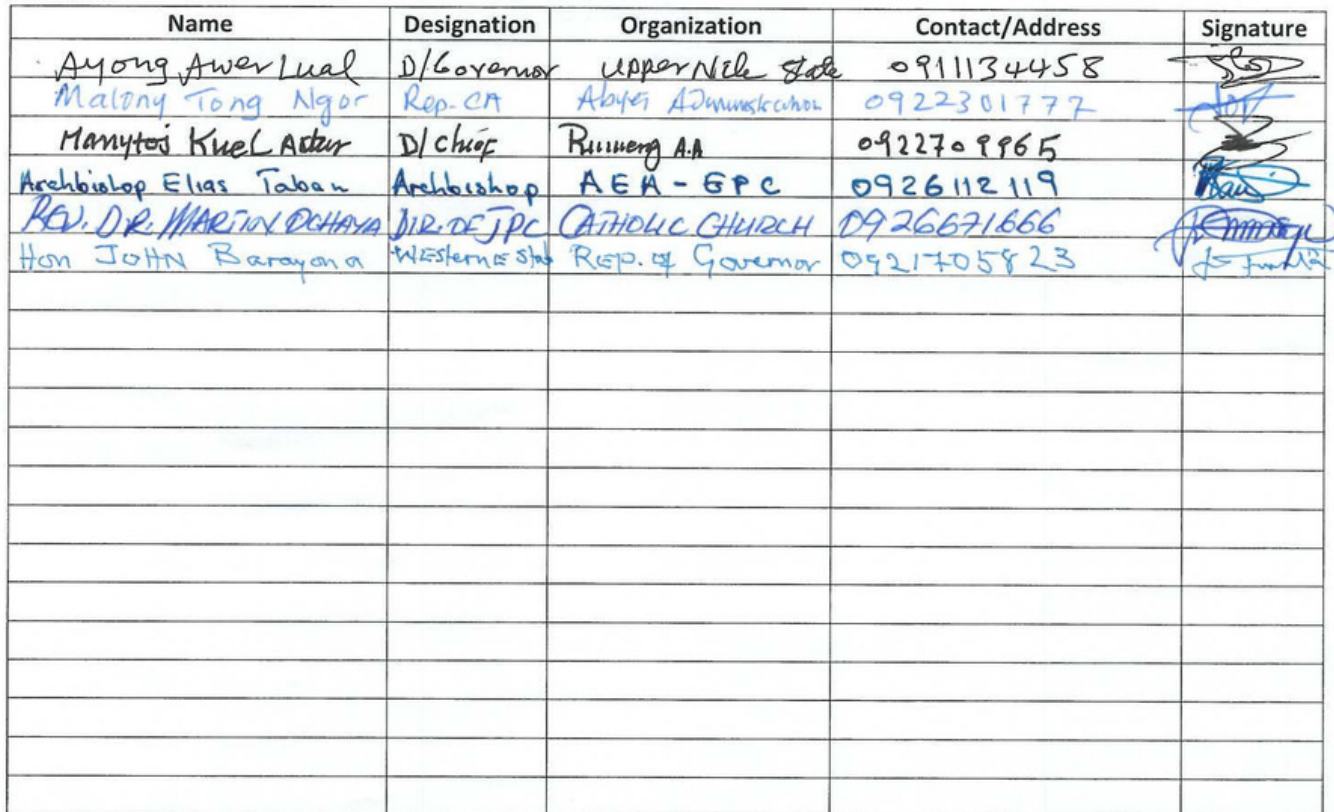 Name Designation Organization Contact/Address Signature
Ayong Awer Lual D/Governor Upper Nile State 0911134458
Malony Tong Ngor Rep. CA Abyei Administration 0922301777
Manytoj Kuel D/Chief A.A 0922709965
Archbishop Elias Taban Archbishop AEA - EPC 0926112119
REV. DR. MARTIN OCHAYA DIR. OF JPC CATHOLIC CHURCH 0926671666
Hon JOHN Barayona WEsternE Rep. of Governor 0921705823